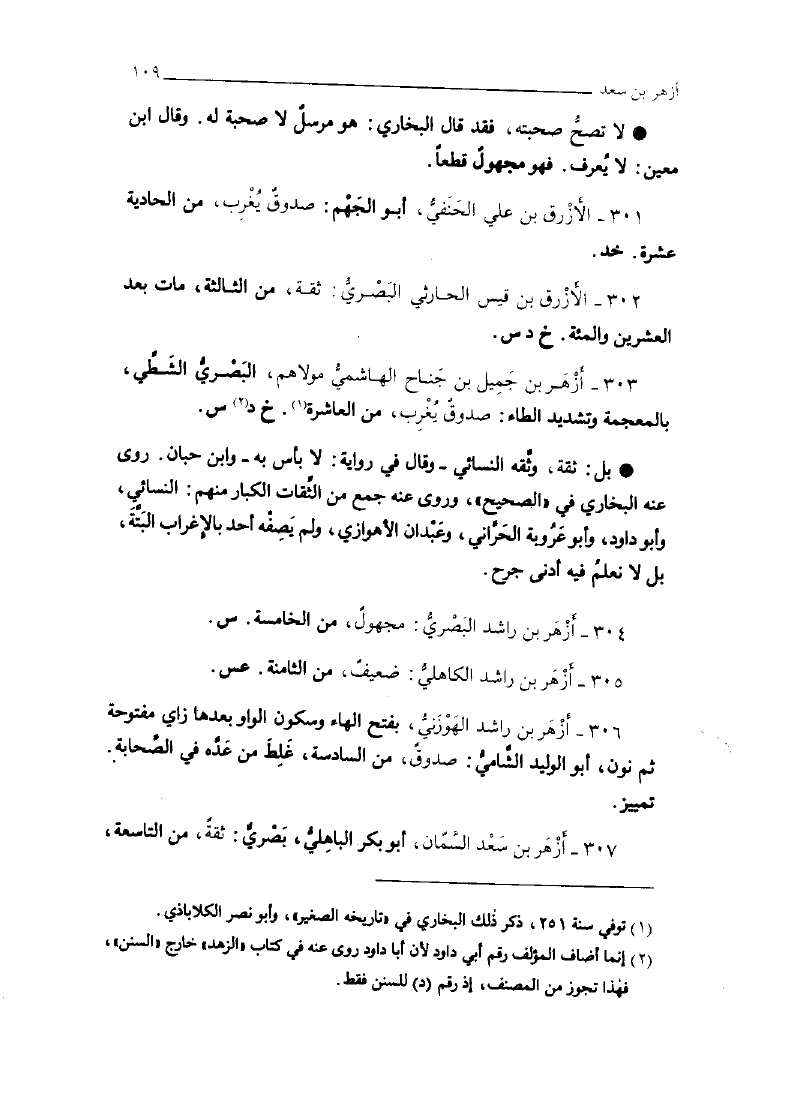 أزهر بن سعد ١٠٩
● لا تصحُّ صحبته، فقد قال البخاري: هو مرسلٌ لا صحبة له. وقال ابن
معين: لا يُعرف. فهو مجهولٌ قطعاً.
٣٠١ ـ الأَزْرق بن علي الحَنَفيُّ، أبـو الجَهْم: صدوقٌ يُغْرِب، من الحادية
عشرة. خد.
٣٠٢ ـ الأَزْرق بن قيس الحارثي البَصْـريُّ: ثقـة، من الثـالثة، مات بعد
العشرين والمئة. خ د س.
٣٠٣ ـ أَزْهَـر بن جَمِيل بن جَنـاح الهـاشميُّ مولاهم، البَصْـريُّ الشَـطِّي،
بالمعجمة وتشديد الطاء: صدوقٌ يُغْرِب، من العاشرة(١). خ د(٢) س.
● بل: ثقة، وثَّقه النسائي ـ وقال في رواية: لا بأس به ـ وابن حبان. روى
عنه البخاري في «الصحيح»، وروى عنه جمع من الثِّقات الكبار منهم: النسائي،
وأبو داود، وأبو عَرُوبة الحَرَّاني، وعَبْدان الأهوازي، ولم يَصِفْه أحد بالإغراب البَتَّةَ،
بل لا نعلمُ فيه أدنى جرح.
٣٠٤ ـ أَزْهَر بن راشد البَصْريُّ: مجهولٌ، من الخامسة. س.
٣٠٥ ـ أَزْهَر بن راشد الكاهليُّ: ضعيفٌ، من الثامنة. عس.
٣٠٦ ـ أَزْهَر بن راشد الهَوْزَنيُّ، بفتح الهاء وسكون الواو بعدها زاي مفتوحة
ثم نون، أبو الوليد الشَّاميُّ: صدوقٌ، من السادسة، غَلِطَ من عَدَّه في الصَّحابة.
تمييز.
٣٠٧ ـ أَزْهَر بن سَعْد السَّمّان، أبو بكر الباهِليُّ، بَصْريٌّ: ثقةٌ، من التاسعة،
(١) توفي سنة ٢٥١، ذكر ذلك البخاري في «تاريخه الصغير»، وأبو نصر الكلاباذي.
(٢) إنما أضاف المؤلف رقم أبي داود لأن أبا داود روى عنه في كتاب «الزهد» خارج «السنن»،
فهذا تجوز من المصنف، إذ رقم (د) للسنن فقط.